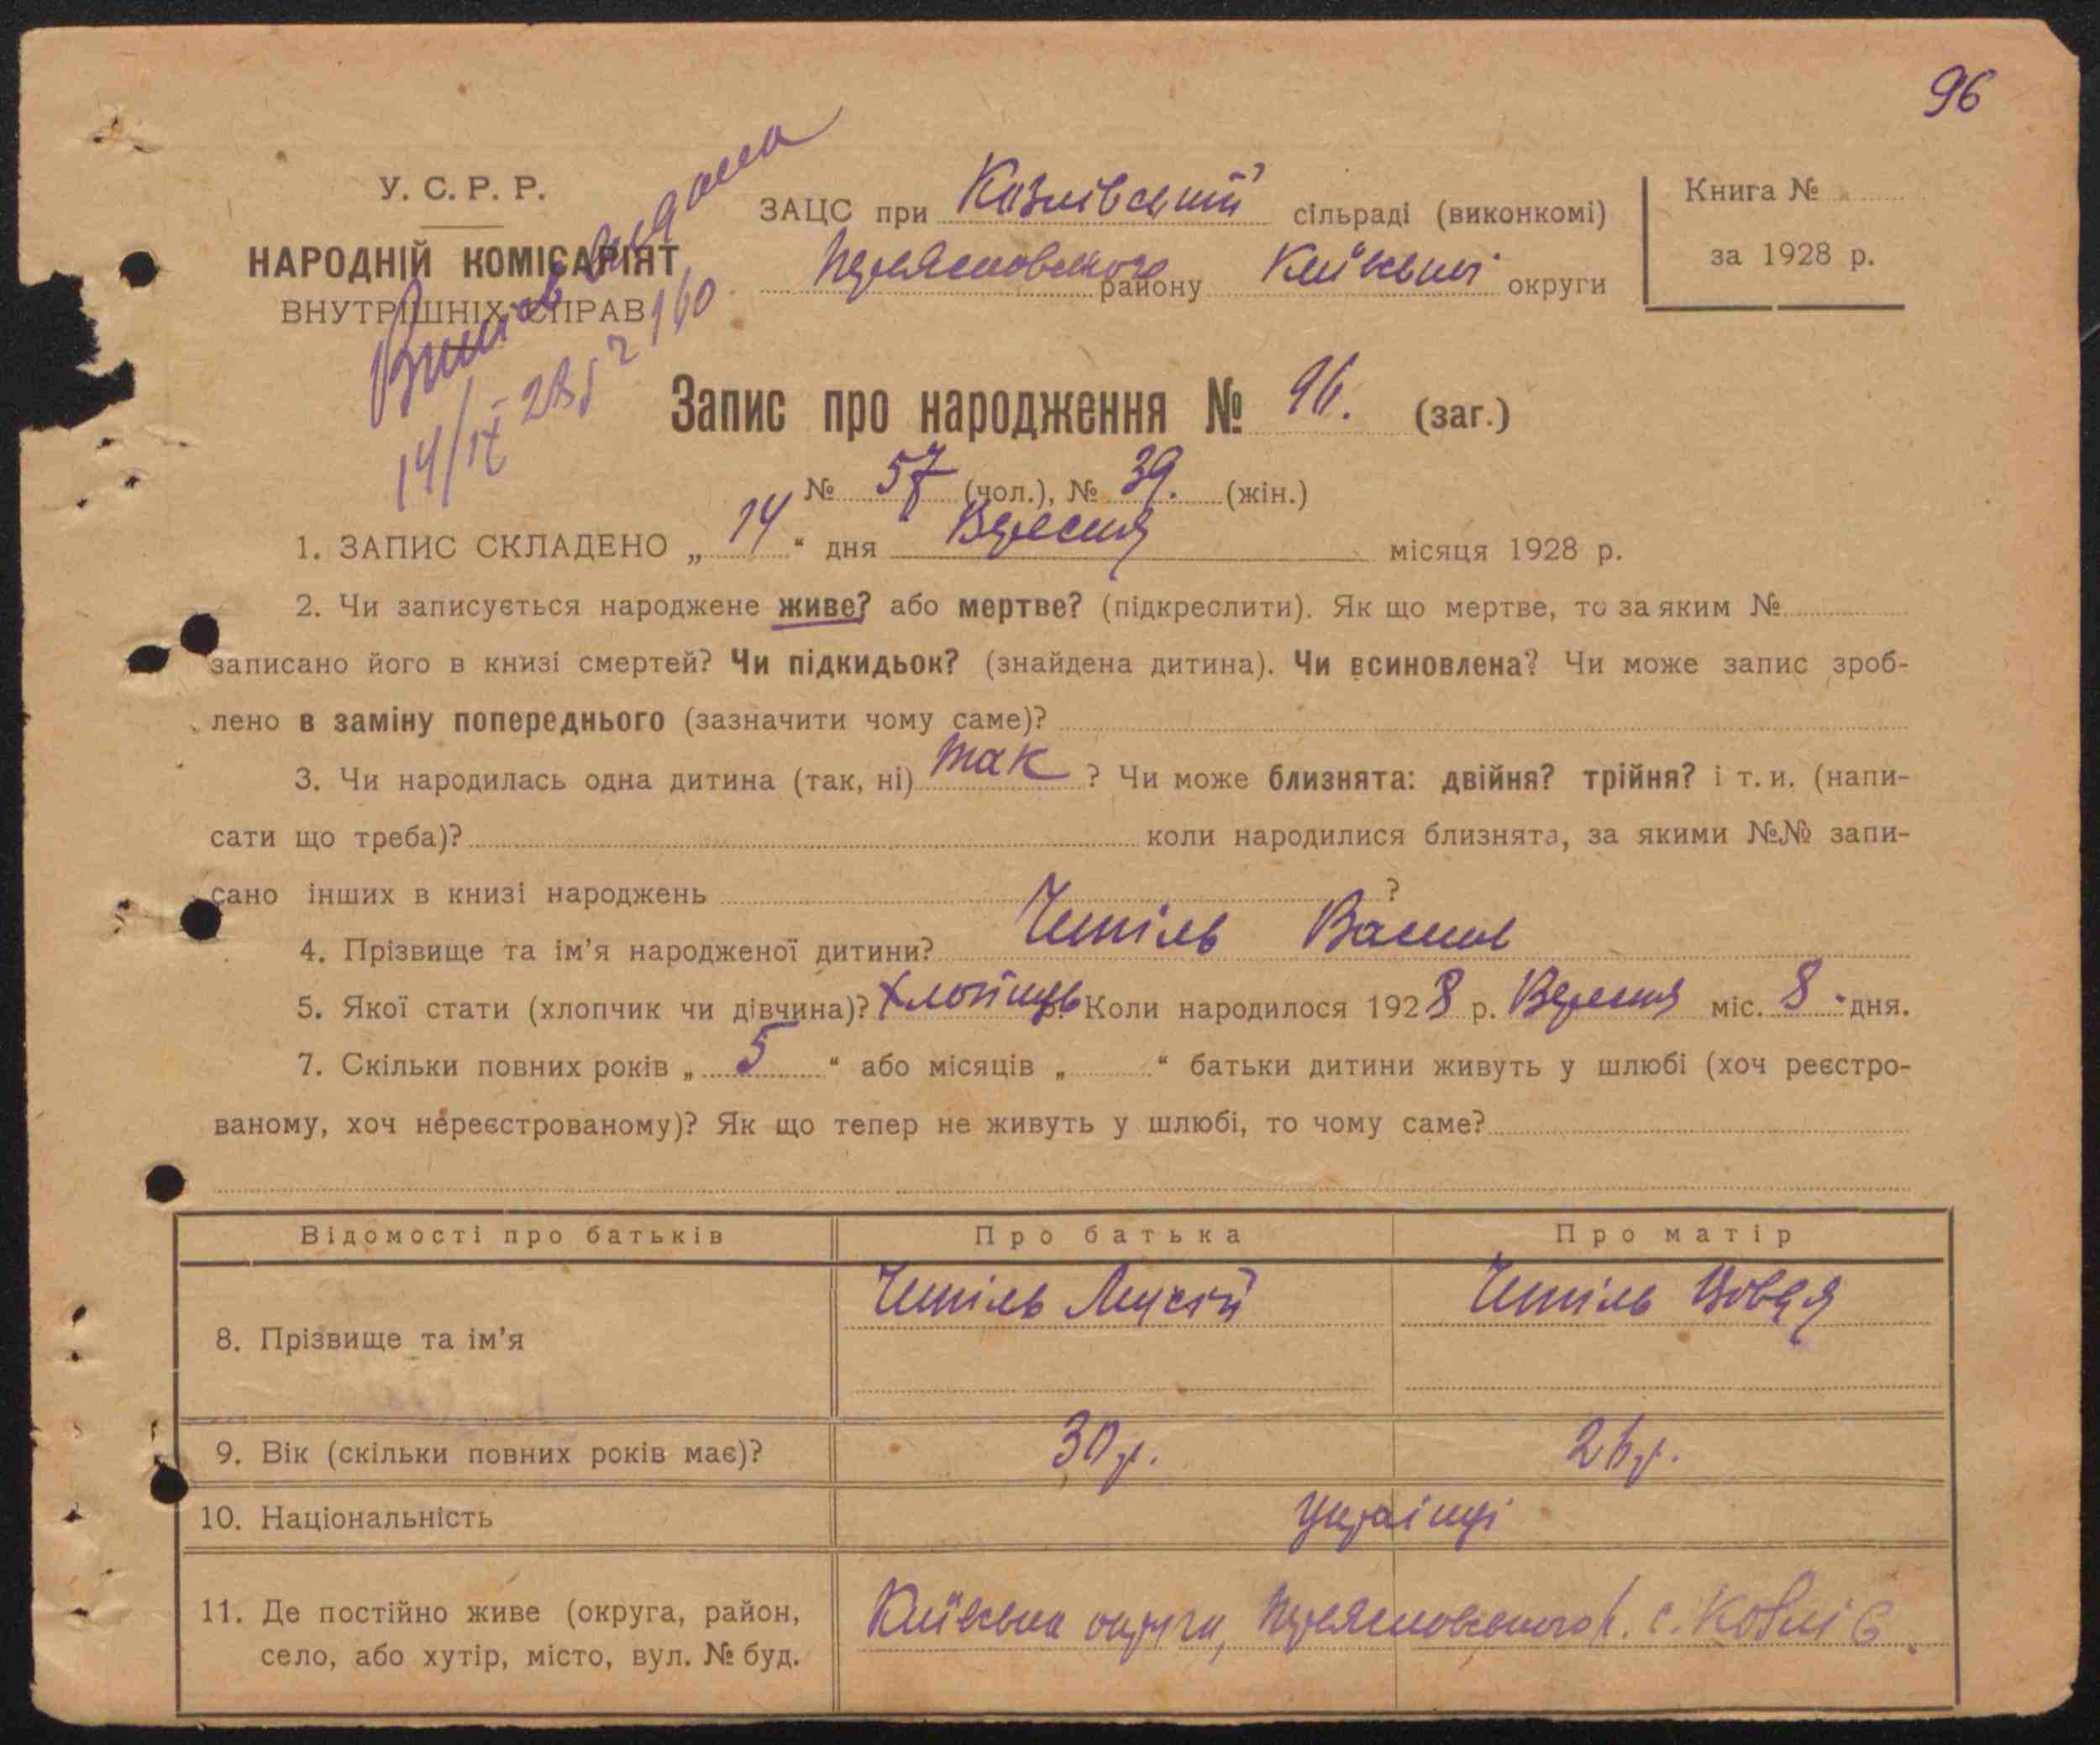 96
У. С. Р. Р.
НАРОДНІЙ КОМІСАРІЯТ
ВНУТРІШНІХ СПРАВ
ЗАЦС при Козлівській сільраді (виконкомі)
Переясловського району Київської округи
Книга №
за 1928 р.
Запис про народження № 96. (заг.)
№ 57 (чол.), № 39. (жін.)
1. ЗАПИС СКЛАДЕНО „ 14 “ дня Вересня місяця 1928 р.
2. Чи записується народжене живе? або мертве? (підкреслити). Як що мертве, то за яким №
записано його в книзі смертей? Чи підкидьок? (знайдена дитина). Чи всиновлена? Чи може запис зроб-
лено в заміну попереднього (зазначити чому саме)?
3. Чи народилась одна дитина (так, ні) так ? Чи може близнята: двійня? трійня? і т. и. (напи-
сати що треба)? коли народилися близнята, за якими №№ запи-
сано інших в книзі народжень ?
4. Прізвище та ім’я народженої дитини? Чепіль Василь
5. Якої стати (хлопчик чи дівчина)? хлопець 6. Коли народилося 1928 р. Вересня міс. 8 дня.
7. Скільки повних років „ 5 “ або місяців „ “ батьки дитини живуть у шлюбі (хоч реєстро-
ваному, хоч нереєстрованому)? Як що тепер не живуть у шлюбі, то чому саме?
Відомості про батьків Про батька Про матір
8. Прізвище та ім’я Чепіль Мусій Чепіль
9. Вік (скільки повних років має)? 30 р. 26 р.
10. Національність Українці
11. Де постійно живе (округа, район,
село, або хутір, місто, вул. № буд.
Київська округа, Переясловського р. с. Козлів